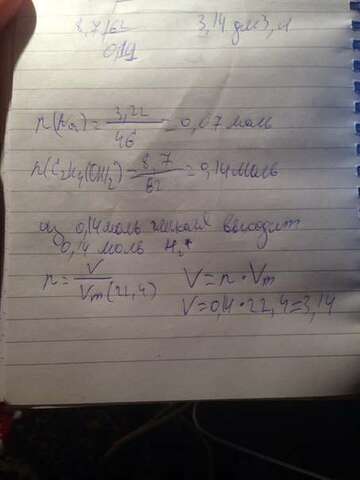 8,7/62 3,14 дм3, л
0,14
n(Na) = 3,22/46 = 0,07 моль
n(C2H4(OH)2) = 8,7/62 = 0,14 моль
из 0,14 моль выходит
0,14 моль H2
n = V/Vm(22,4) V = n · Vm
V = 0,14 · 22,4 = 3,14